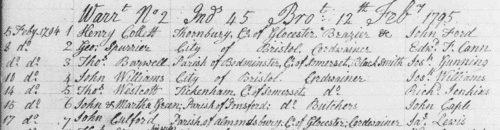 Warrt. No 2 Ind 45 Brot. 12th Feby 1795
5 Feby. 1794 1 Henry Collett Thornbury, C. of Glocester Brazier &c John Ford
8 do. 2 Geo. Spurrier City of Bristol Cordwainer Edwd. T. Cann
do. do. 3 Thos. Barwell Parish of Bedminster, C. of Somerset, Black Smith Jos. Gunning
10 do. 4 John Williams City of Bristol. Cordwainer Jos. Williams
14 do. 5 Thos. Westcott Tickenham, C. of Somerset do. Richd. Jenkins
15 do. 6 John & Martha Green, Parish of Butchers John Caple
17 do. 7 John Parish of Almondsbury, C. of Glocester, Cordwainer Jas. Lewis